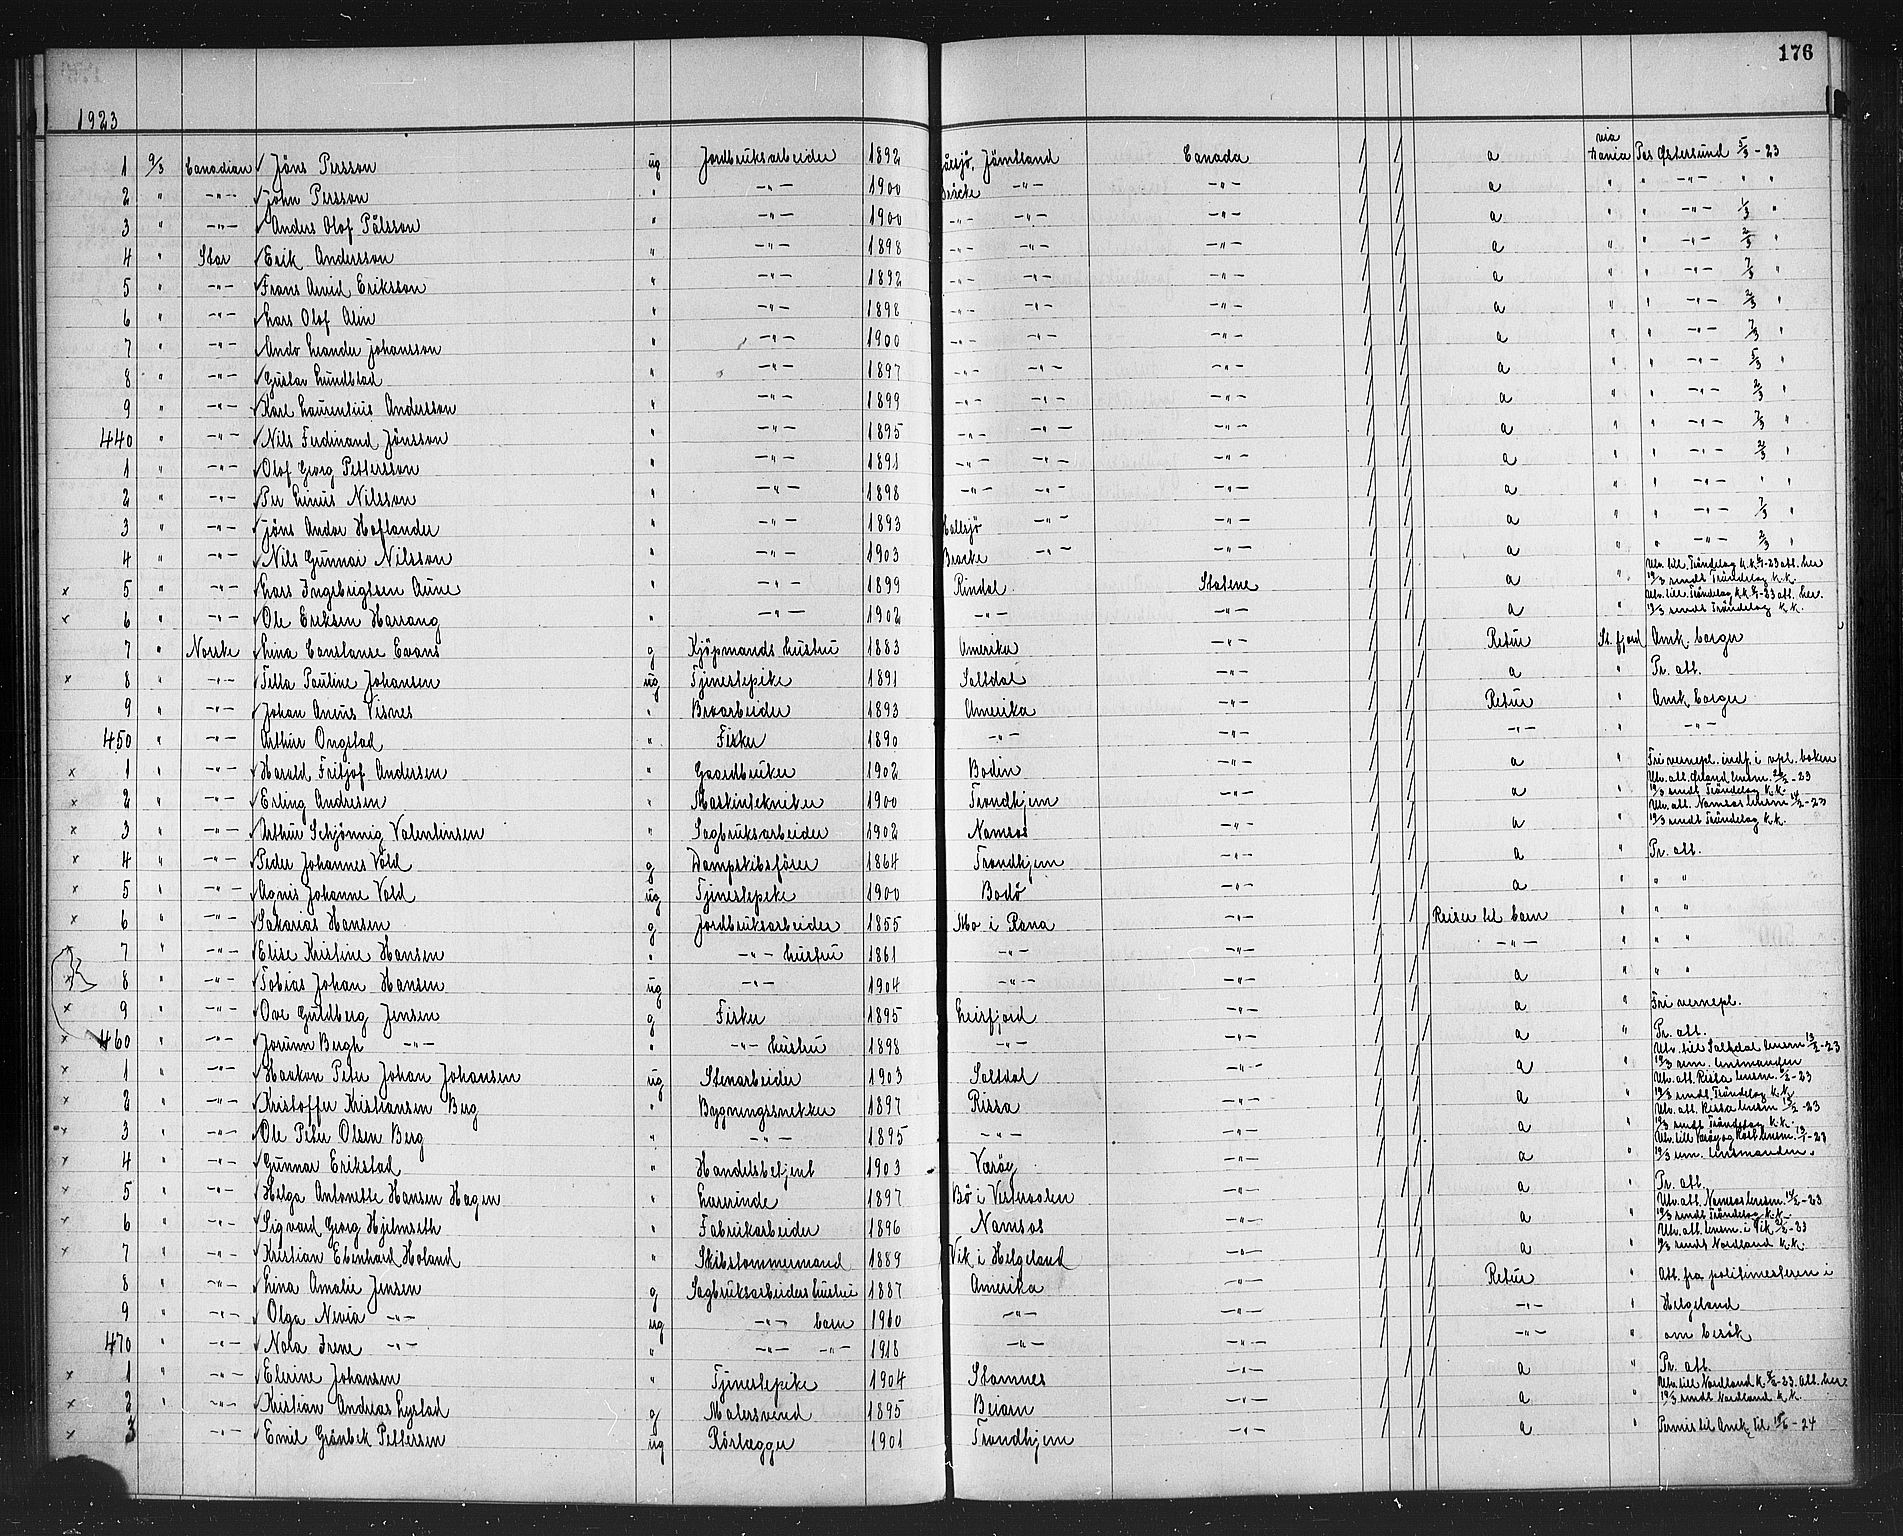 176
1923
1 9/3 Canadian Jöns Persson ug Jordbruksarbeider 1892 Jämtland Canada a via Dania Pas Østersund 5/3 - 23
2 " -"- John Persson " -"- 1900 Bräcke -"- -"- a " " -"- " "
3 " -"- Anders Olof Pålsson " -"- 1900 -"- -"- -"- a " " -"- 1/3 "
4 " Star Erik Andersson " -"- 1898 -"- -"- -"- a " " -"- 2/3 "
5 " -"- Frans Arvid Eriksson " -"- 1892 -"- -"- -"- a " " -"- 7/3 "
6 " -"- Lars Olof Alin " -"- 1898 -"- -"- -"- a " " -"- 2/3 "
7 " -"- Johansson " -"- 1900 -"- -"- -"- a " " -"- 7/3 "
8 " -"- Gustav Lundblad " -"- 1897 -"- -"- -"- a " " -"- 5/3 "
9 " -"- Karl Laurentius Andersson " -"- 1899 -"- -"- -"- a " " -"- 2/3 "
440 " -"- Nils Ferdinand Jönsson " -"- 1895 -"- -"- -"- a " " -"- 7/3 "
1 " -"- Olof Georg Pettersson " -"- 1891 -"- -"- -"- a " " -"- 2/3 "
2 " -"- Per Linus Nilsson " -"- 1898 -"- -"- -"- a " " -"- " "
3 " -"- Jöns Andor Hoflander " -"- 1893 Hallsjö -"- -"- a " " -"- 7/3 "
4 " -"- Nils Gunnar Nilsson " -"- 1903 Bracke -"- -"- a " " -"- 2/3 "
x 5 " -"- Lars Ingebrigtsen Aune " -"- 1899 Rindal Statene a " Utv. till Tröndelag k.k. -23 att. her 10/3 sendt Tröndelag k.k.
x 6 " -"- Ole Eriksen Harrang " -"- 1902 -"- -"- a " Utv. till Tröndelag k.k. -23 att. her. 10/3 sendt Tröndelag k.k.
7 " Norske Lina Constanse Evans g Kjöpmands hustru 1883 Amerika -"- Retur St. fjord Amk. borger
x 8 " -"- Tella Pauline Johansen ug Tjenestepike 1891 Saltdal -"- a " Pr. att.
9 " -"- Johan Aneus Visnes " Broarbeider 1893 Amerika -"- Retur " Amk. borger
450 " -"- Arthur Ongstad " Fisker 1890 -"- -"- -"- " -"-
x 1 " -"- Harald Fritjof Andersen " Gaardbruker 1902 Bodin -"- a " Fri vernepl. indf. i vpl. boken
x 2 " -"- Erling Andresen " Maskintekniker 1900 Trondhjem -"- a " Utv. att. Ørland lensm. -23 10/3 sendt Tröndelag k.k.
x 3 " -"- Arthur Schjönnig Valentinsen " Sagbruksarbeider 1902 Namsos -"- a " Utv. att. Namsos lensm 14/2 - 23 10/3 sendt Tröndelag k.k.
x 4 " -"- Peder Johannes Vold g Dampskibsförer 1864 Trondhjem -"- a " Pr. att.
x 5 " -"- Agnis Johanne Vold ug Tjenestepike 1900 Bodö -"- a " " "
x 6 " -"- Sakarias Hansen g Jordbruksarbeider 1855 Mo i Rana -"- Reiser til barn " " "
x 7 " -"- Elise Kristine Hansen " -"- hustru 1861 -"- -"- -"- " " "
x 8 " -"- Tobias Johan Hansen ug -"- 1904 -"- -"- a " " "
x 9 " -"- Ove Guldberg Jensen g Fisker 1895 Leirfjord -"- a " Fri vernepl.
x 460 " -"- Jorunn Bergh -"- " -"- hustru 1898 -"- -"- a " Pr. att.
x 1 " -"- Haakon Peter Johan Johansen ug Stenarbeider 1903 Saltdal -"- a " Utv. till Saltdal lensm 13/2 - 23 10/3 lensmanden
x 2 " -"- Kristoffer Kristiansen Berg " Bygningssnekker 1897 Rissa -"- a " Utv. att. Rissa lensm. -23 10/3 sendt Tröndelag k.k.
x 3 " -"- Ole Peter Olsen Berg " -"- 1895 -"- -"- a " Utv. att. Rissa lensm -23 10/3 sendt Tröndelag k.k.
x 4 " -"- Gunnar Erikstad " Handelsbetjent 1903 Værøy -"- a " Utv. till Værøy og Røst lensm. -23 10/3 lensmanden.
x 5 " -"- Helga Antonette Hansen Hagen " Lærerinde 1897 Bö i Vesteraalen -"- a " Pr. att.
x 6 " -"- Sigvard Georg Hjelmseth " Fabrikarbeider 1896 Namsos -"- a " Utv. att. Namsos lensm. 14/2 - 23 10/3 sendt Tröndelag k.k.
x 7 " -"- Kristian Ebenhard Holand " Skibstømmermand 1889 Vik i Helgeland -"- a " Utv. att. lensm. i Vik -23 10/3 sendt Nordland k.k.
8 " -"- Lina Amalie Jensen g Sagbruksarbeiders hustru 1887 Amerika -"- Retur " Att. fra politimesteren i
9 " -"- Olga Nevia -"- ug -"- barn 1910 -"- -"- -"- " Helgeland
470 " -"- Nola Irene -"- " -"- -"- 1918 -"- -"- -"- " om besök
x 1 " -"- Elerine Johansen " Tjenestepike 1904 Stamnes -"- a " Pr. att.
x 2 " -"- Kristian Andreas Lystad g Malersvend 1895 Beiarn -"- a " Utv. till Nordland k. -23. Att. her. 10/3 sendt Nordland k.k.
x 3 -"- Emil Grönbek Pettersen ug Rörlægger 1901 Trondhjem -"- a " Permis til Amk. til 15/6 - 24